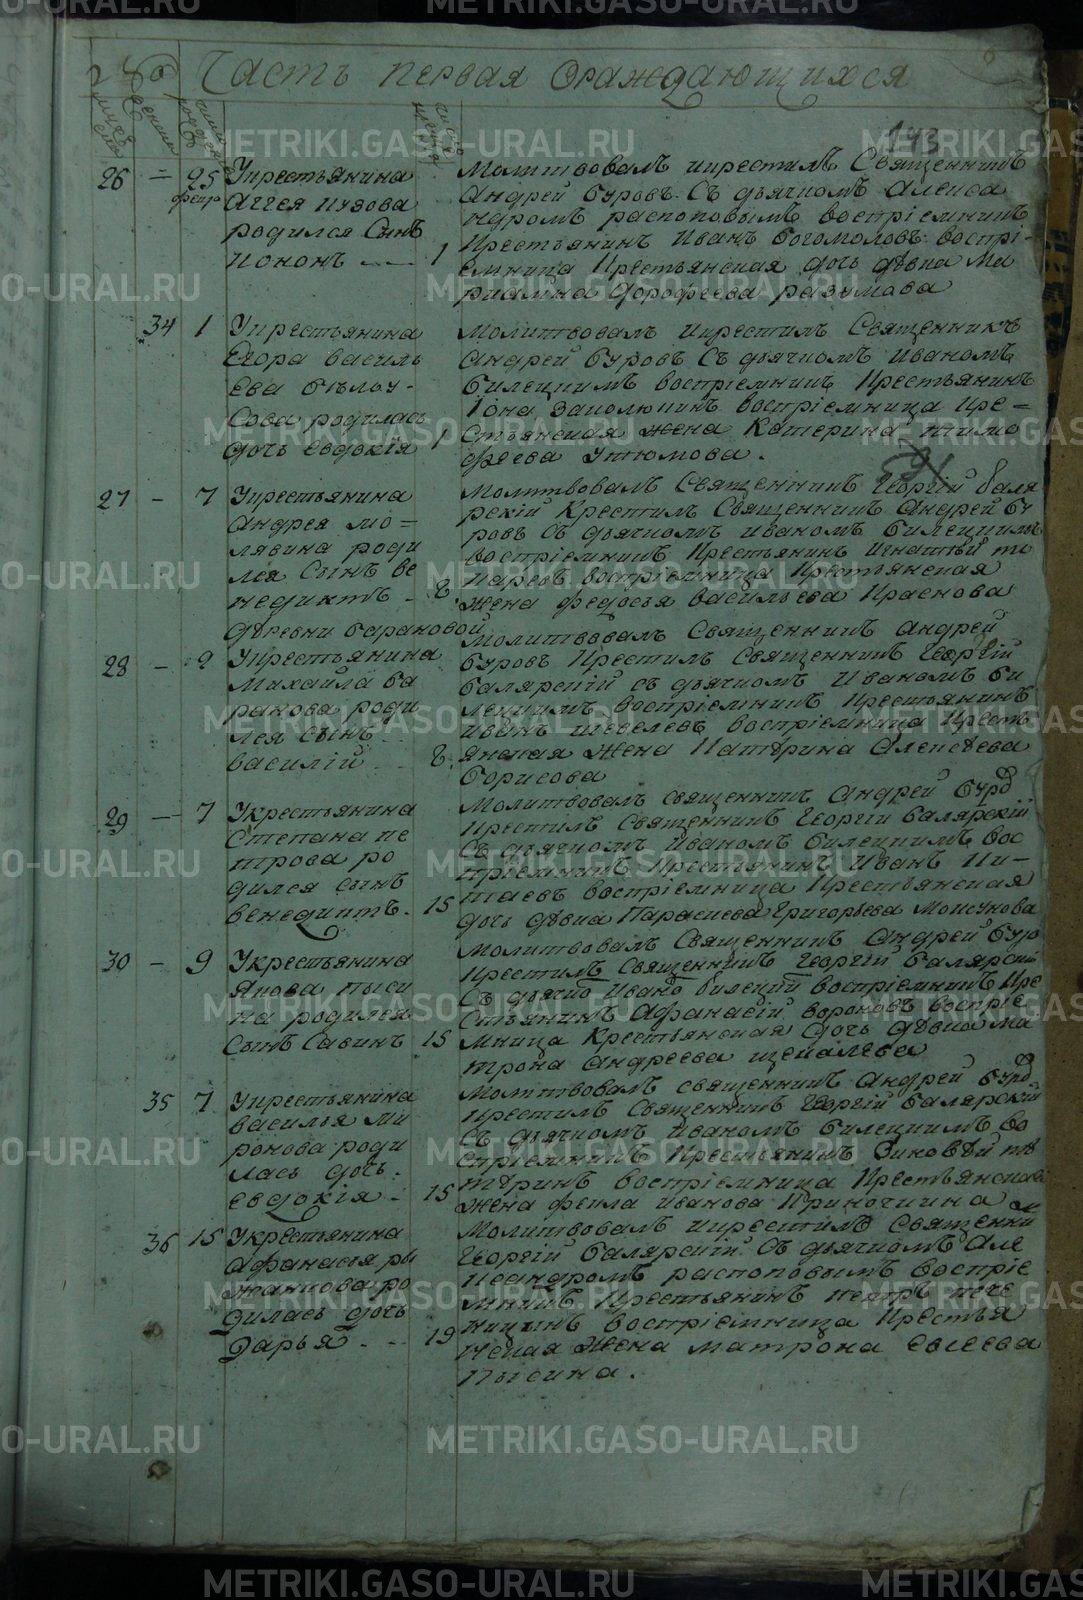 Часть первая ораждающихся
143
26 - 25 Укрестьянина
февр
Аггея Пузова
родился Сынъ
Конон 1
Молитвовалъ икрестилъ Священникъ
Андрей Буровъ Съ дьячкомъ Алекса
ндромъ распоповымъ восприемникъ
Крестьянинъ Иванъ Богомоловъ воспрі-
емница Крестьянская дочь девка Ма
риамна дорофеева разумова
34 1 Укрестьянина
Егора василь
ева белоу-
сова родилась
дочь евдокія 1
Молитвовалъ икрестилъ Священникъ
Андрей Буровъ Съ дьячкомъ иваномъ
билецкимъ воспріемникъ Крестьянинъ
Іона Заколюкинъ воспріемница кре=
стьянская жена Катерина тимо
феева Утюмова.
27 - 7 Укрестьянина
Андрея мо=
лявина роди
лся Сынъ ве
недиктъ - 8.
Молитвовалъ Священникъ Георгій Баля
рскій Крестилъ Священникъ Андрей бу
ровъ Съ дьячкомъ иваномъ билецкимъ
воспріемникъ Крестьянинъ игнатъй то
каревъ воспріемница Крестьянская
жена федосья васильева Краснова
деревни барановой
28 - 2 Укрестьянина
Михаила ба
ранова роди
лся сынъ
василій 8.
Молитвовалъ Священникъ Андрей
буровъ Крестилъ Священникъ Георгій
балярскій съ дьячкомъ Иваномъ би
лецкимъ воспріемникъ Крестьянинъ
иванъ шевелевъ воспріемница Кресть
янская жена Катерина Алексеева
борисова
29 - 7 Укрестьянина
Степана пе
трова ро
дился сынъ
венедиктъ. 15
Молитвовалъ священникъ Андрей буро
Крестилъ Священникъ Георгій балярскій
Съ дьячкомъ иваномъ билецкимъ вос
пріемникъ Крестьянинъ Иванъ Ки-
таевъ воспріемница Крестьянская
дочь девка Парасковья Григорьева Мокунова
30 - 9 Укрестьянина
Якова пыси
на родился
Сынъ Савинъ 15
Молитвовалъ Священникъ Андрей буро
Крестилъ Священникъ Георгій балярскій
Съ дьячко Ивано билецки воспріемникъ Кре
стьянинъ Афанасій вороновъ воспріе
мница Крестьянская дочь девка ма
трона Андреева щекалева
35 7 Укрестьянина
василья ми
ронова роди
лась дочь
евдокія - 15
Молитвовалъ священникъ Андрей буро
Крестилъ Священникъ Георгій балярскій
Съ дьячкомъ иваномъ билецкимъ во
спріемникъ Крестьянинъ Зиновей
воспріемница Крестьянская
жена фекла иванова Криночкина
36 15 Укрестьянина
Афанасья ры
жанкова ро
дилась дочь
Дарья - 19
Молитвовалъ икрестилъ Священни
Георгій балярскій Съ дьячкомъ Але
ксандромъ распоповымъ воспріе
мникъ Крестьянинъ петръ пече
ницынъ воспріемница Крестья
нская жена матрона евсеева
пысина.